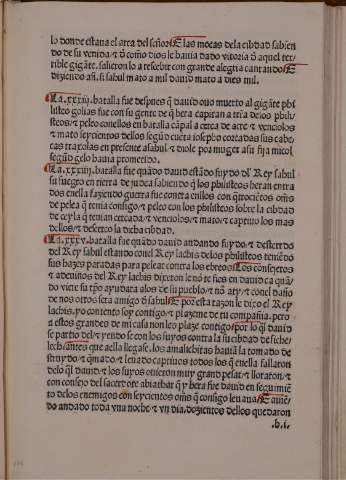 lo donde estaua el arca del señor. E las moças dela cibdad sabien
do de su venida & d'como dios le hauia dado vitoria d'aquel ter
rible gigãte. salieron lo a resebir con grande alegria cantando. E
diziendo añ. si sabul mato a mil dauid mato a diez mil.
La .xxxiij. batalla fue despues q̃ dauid ouo muerto al gigãte phi
listeo golias fue con su gente de q̃ hera capitan a trra delos phili-
steos; & peleo conellos en batalla cãpal a cerca de acre & vencio los
& mato seyscientos dellos segũd cuẽta iosepho cortadas sus cabe
ças traxolas en presente a sabul & diole por muger a su fija micol
segũd gelo hauia prometido.
La .xxxiiij. batalla fue quãdo dauid estãdo fuydo dl' Rey sabul
su suegro en tierra de judea sabiendo q̃ los philisteos heran entra
dos enella faziendo guerra fue contra enllos con q̃trociẽtos om̃s
de pelea q̃ tenia consigo & peleo con los philisteos sobre la cibdad
de ceyla q̃ tenian cercada & venciolos, & mato & captiuo los mas
dellos, & descerco la dicha cibdad.
La .xxxv. batalla fue quãdo dauid andando fuydo & desterrado
del Rey sabul estando conel Rey lachis delos philisteos teniẽdo
sus hazes paradas para pelear contra los ebreos. Los consejeros
& adeuinos del Rey lachis dixeron le no te fies en dauid ca quã
do viere su tp̃o ayudara alos de su pueblo & nõ a ty & conel daño
de nos otros sera amigo d'sabul. E por esta razon le dixo el Rey
lachis. yo contento soy contigo & plazeme de tu compañia. pero
a estos grandes de mi casa non les plaze contigo por lo q̃l dauid
se partio del & yendo se con los suyos contra la su cibdad de siche/
lech antes que aella llegase. los amalechitas hauiã la tomado de
struydo & q̃mado & leuado captiuos todos los q̃ enella fallaron
delo q̃l dauid & los suyos ouieron muy grand pesar & lloraron &
con consejo del sacerdote abiathar q̃ y hera fue dauid en seguimiẽ
to delos enemigos con seyscientos om̃s q̃ consigo leuaua. E auiẽ/
do andado toda vna noche & vn dia. dozientos dellos quedaron
.b.i.